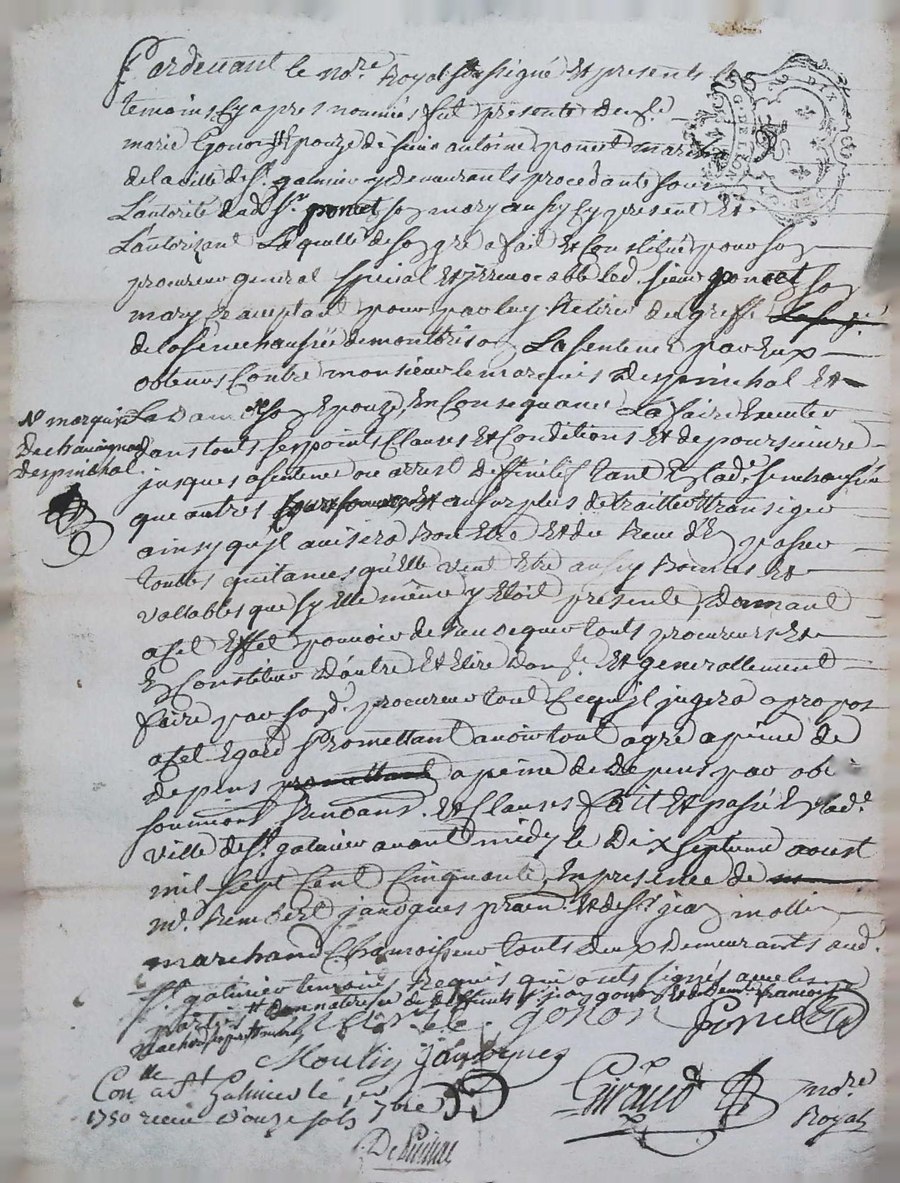 Pardevant le no.re Royal soussigné Et presents les
temoins cy apres nommés fut presente de.lle
marie gonon # epouze de sieur antoine poncet mar
de la ville de S.t galmier y demeurants procedante sous
L'autorité dud S.r poncet so mary aussy cy present Et
L'autorizant Laquelle de so gré a fait Et Constitué pour so
procureur general special Et irrevocable led. sieur poncet so
mary acceptant pour par luy Retirer du greffe
de la senechaussée de montbriso La sentence par Eux
obtenue Contre monsieur le marquis Despinchal Et
La Dame so Epouze, En Consequance La faire Executer
N.e marquis
De chavaignac
Despinchal
dans touts ses points Clauses Et Conditions Et de poursuivre
jusques a sentence ou arrest deffinitif tant E lad.e senechaussée
que autres au surplus de traitter transiger
ainsy qu'il avisera Bon Etre Et du Receu d'E passer
toutes quitances qu'Elle veut Etre aussy Bonnes Et
vallables que sy Elle même y Etoit presente, Donnant
a cet Effet pouvoir de Revoquer touts procureurs Et
E Constituer d'autre Et Elire Dom.le Et generallement
faire par sod. procureur tout Ce qu'il jugera a propos
a cet Egard Promettant avoir tout agré a peine de
depens promettant a peine de Depens par obi
soumions Renoans. Et Clauses fait Et passé E lad.e
ville de S.t galmier avant midy le Dix Septieme aoust
mil Sept Cent Cinquante, En presence de
m.e Rembert janoques pratn Et de S.r jea molli
marchand Chamoisseur touts deux Demeurants aud.
S.t galmier temoins Requis qui ont signés avec les
parties # donnatrice de deffunts S.r jea gonon Et de Dem.lle francoise
gonon Poncet
Moulin Janoques
Con.lle a S.t Galmier le 1.er 7bre
1750 receu d'ouze sols
Giraud no.re
Royal